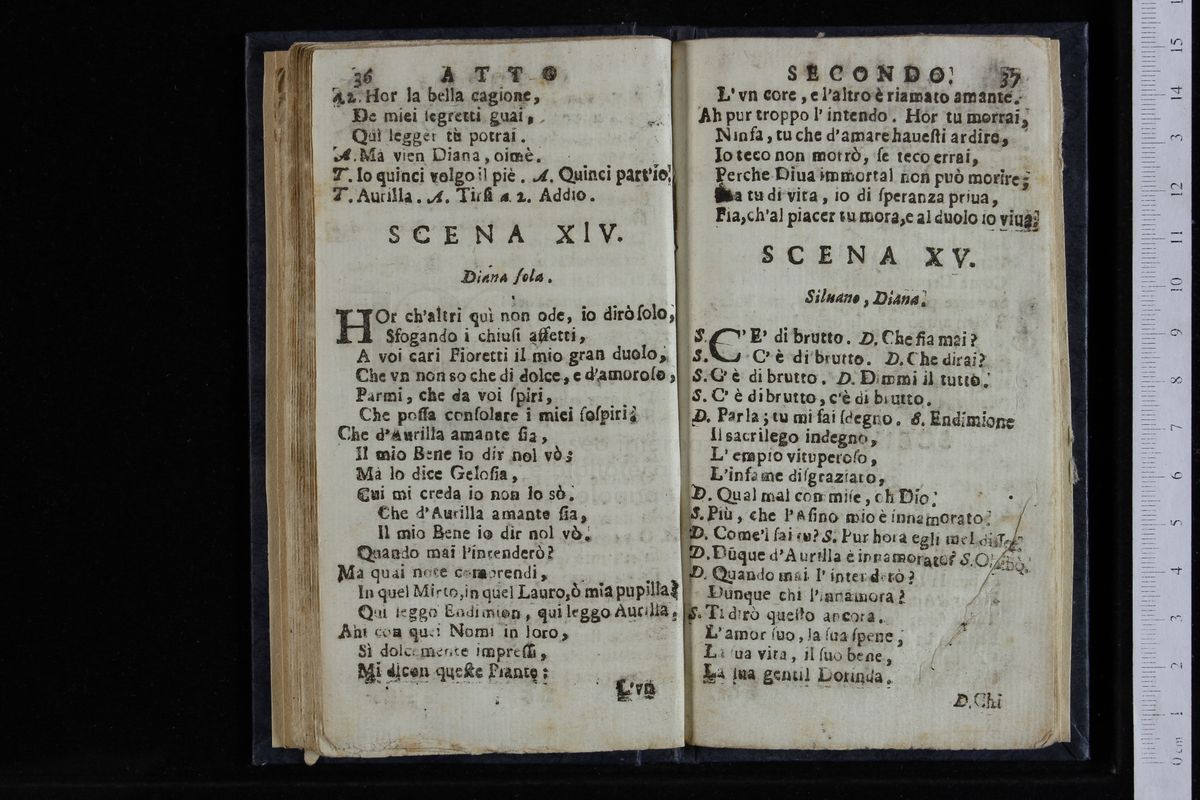 36 ATTO
A 2. Hor la bella cagione,
De miei ſegretti guai,
Quì legger tù potrai.
A. Mà vien Diana, oimè.
T. Io quinci volgo il piè. A. Quinci part'io.
T. Aurilla. A. Tirſi a 2. Addio.
SCENA XIV.
Diana ſola.
HOr ch'altri quì non ode, io dirò ſolo,
Sfogando i chiuſi affetti,
A voi cari Fioretti il mio gran duolo,
Che vn non so che di dolce, e d'amoroſo,
Parmi, che da voi ſpiri,
Che poſſa conſolare i miei ſoſpiri.
Che d'Aurilla amante ſia,
Il mio Bene io dir nol vò;
Mà lo dice Geloſia,
Cui mi creda io non lo sò.
Che d'Aurilla amante ſia,
Il mio Bene io dir nol vò.
Quando mai l'intenderò?
Ma quai note comprendi,
In quel Mirto, in quel Lauro, ò mia pupilla?
Quì leggo Endimion, quì leggo Aurilla,
Ahi con quei Nomi in loro,
Sì dolcemente impreſſi,
Mi dicon queſte Piante:
L'vn
SECONDO. 37
L'vn core, e l'altro è riamato amante.
Ah pur troppo l'intendo. Hor tu morrai,
Ninfa, tu che d'amare haueſti ardire,
Io teco non morrò, ſe teco errai,
Perche Diua immortal non può morire;
Ma tu di vita, io di ſperanza priua,
Fia, ch'al piacer tu mora, e al duolo io viua.
SCENA XV.
Siluano, Diana.
S. C'E' di brutto. D. Che fia mai?
S. C'è di brutto. D. Che dirai?
S. C'è di brutto. D. Dimmi il tutto.
S. C'è di brutto, c'è di brutto.
D. Parla; tu mi fai ſdegno. S. Endimione
Il sacrilego indegno,
L'empio vituperoſo,
L'infame diſgraziato,
D. Qual mal commiſe, oh Dio.
S. Più, che l'Aſino mio è innamorato.
D. Come'l ſai tu? S. Pur hora egli mel
D. Dūque d'Aurilla è innamorato? S.
D. Quando mai l'intenderò?
Dunque chi l'innamora?
S. Ti dirò queſto ancora.
L'amor ſuo, la ſua ſpene,
La ſua vita, il ſuo bene,
La ſua gentil Dorinda.
D. Chi